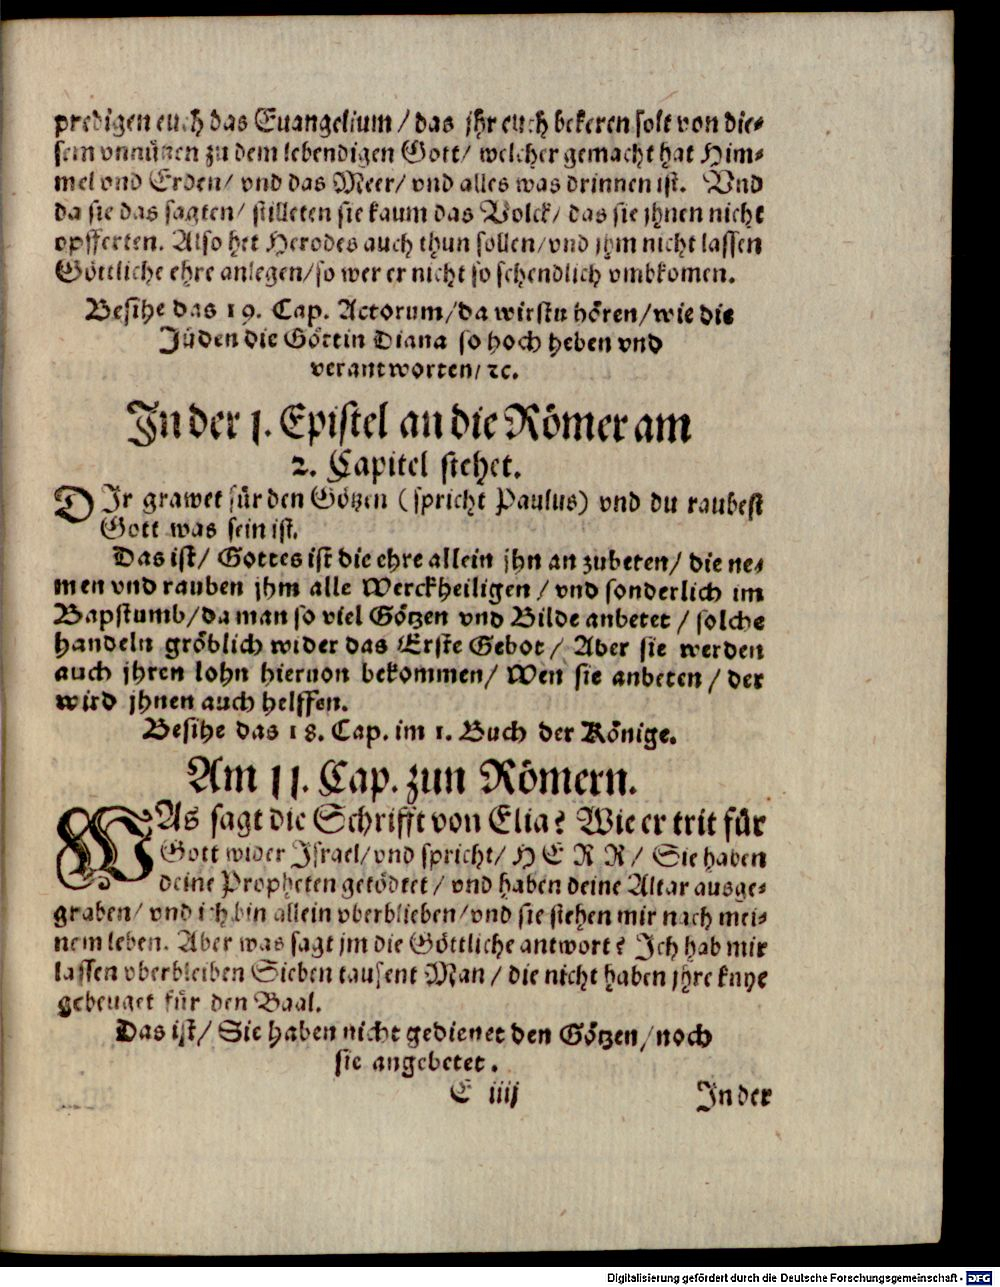 predigen euch das Euangelium / das jhr euch bekeren solt von die-
sem vnnützen zu dem lebendigen Gott / welcher gemacht hat Him-
mel vnd Erden / vnd das Meer / vnd alles was drinnen ist. Vnd
da sie das sagten / stilleten sie kaum das Volck / das sie jhnen nicht
opfferten. Also het Herodes auch thun sollen / vnd jhm nicht lassen
Göttliche ehre anlegen / so wer er nicht so schendlich vmbkomen.
Besihe das 19. Cap. Actorum / da wirstu hören / wie die
Jüden die Göttin Diana so hoch heben vnd
verantworten / ꝛc.
In der 1. Epistel an die Römer am
2. Capitel stehet.
DIr grawet für den Götzen (spricht Paulus) vnd du raubest
Gott was sein ist.
Das ist / Gottes ist die ehre allein jhn an zubeten / die ne-
men vnd rauben jhm alle Werckheiligen / vnd sonderlich im
Bapstumb / da man so viel Götzen vnd Bilde anbetet / solche
handeln gröblich wider das Erste Gebot / Aber sie werden
auch jhren lohn hieruon bekommen / Wen sie anbeten / der
wird jhnen auch helffen.
Besihe das 18. Cap. im 1. Buch der Könige.
Am 11. Cap. zun Römern.
WAs sagt die Schrifft von Elia? Wie er trit für
Gott wider Israel / vnd spricht / HERR / Sie haben
deine Propheten getödtet / vnd haben deine Altar ausge-
graben / vnd ich bin allein vberblieben / vnd sie stehen mir nach mei-
nem leben. Aber was sagt jm die Göttliche antwort? Ich hab mir
lassen vberbleiben Sieben tausent Man / die nicht haben jhre knye
gebeuget für den Baal.
Das ist / Sie haben nicht gedienet den Götzen / noch
sie angebetet.
E iiij In der
Digitalisierung gefördert durch die Deutsche Forschungsgemeinschaft - DFG